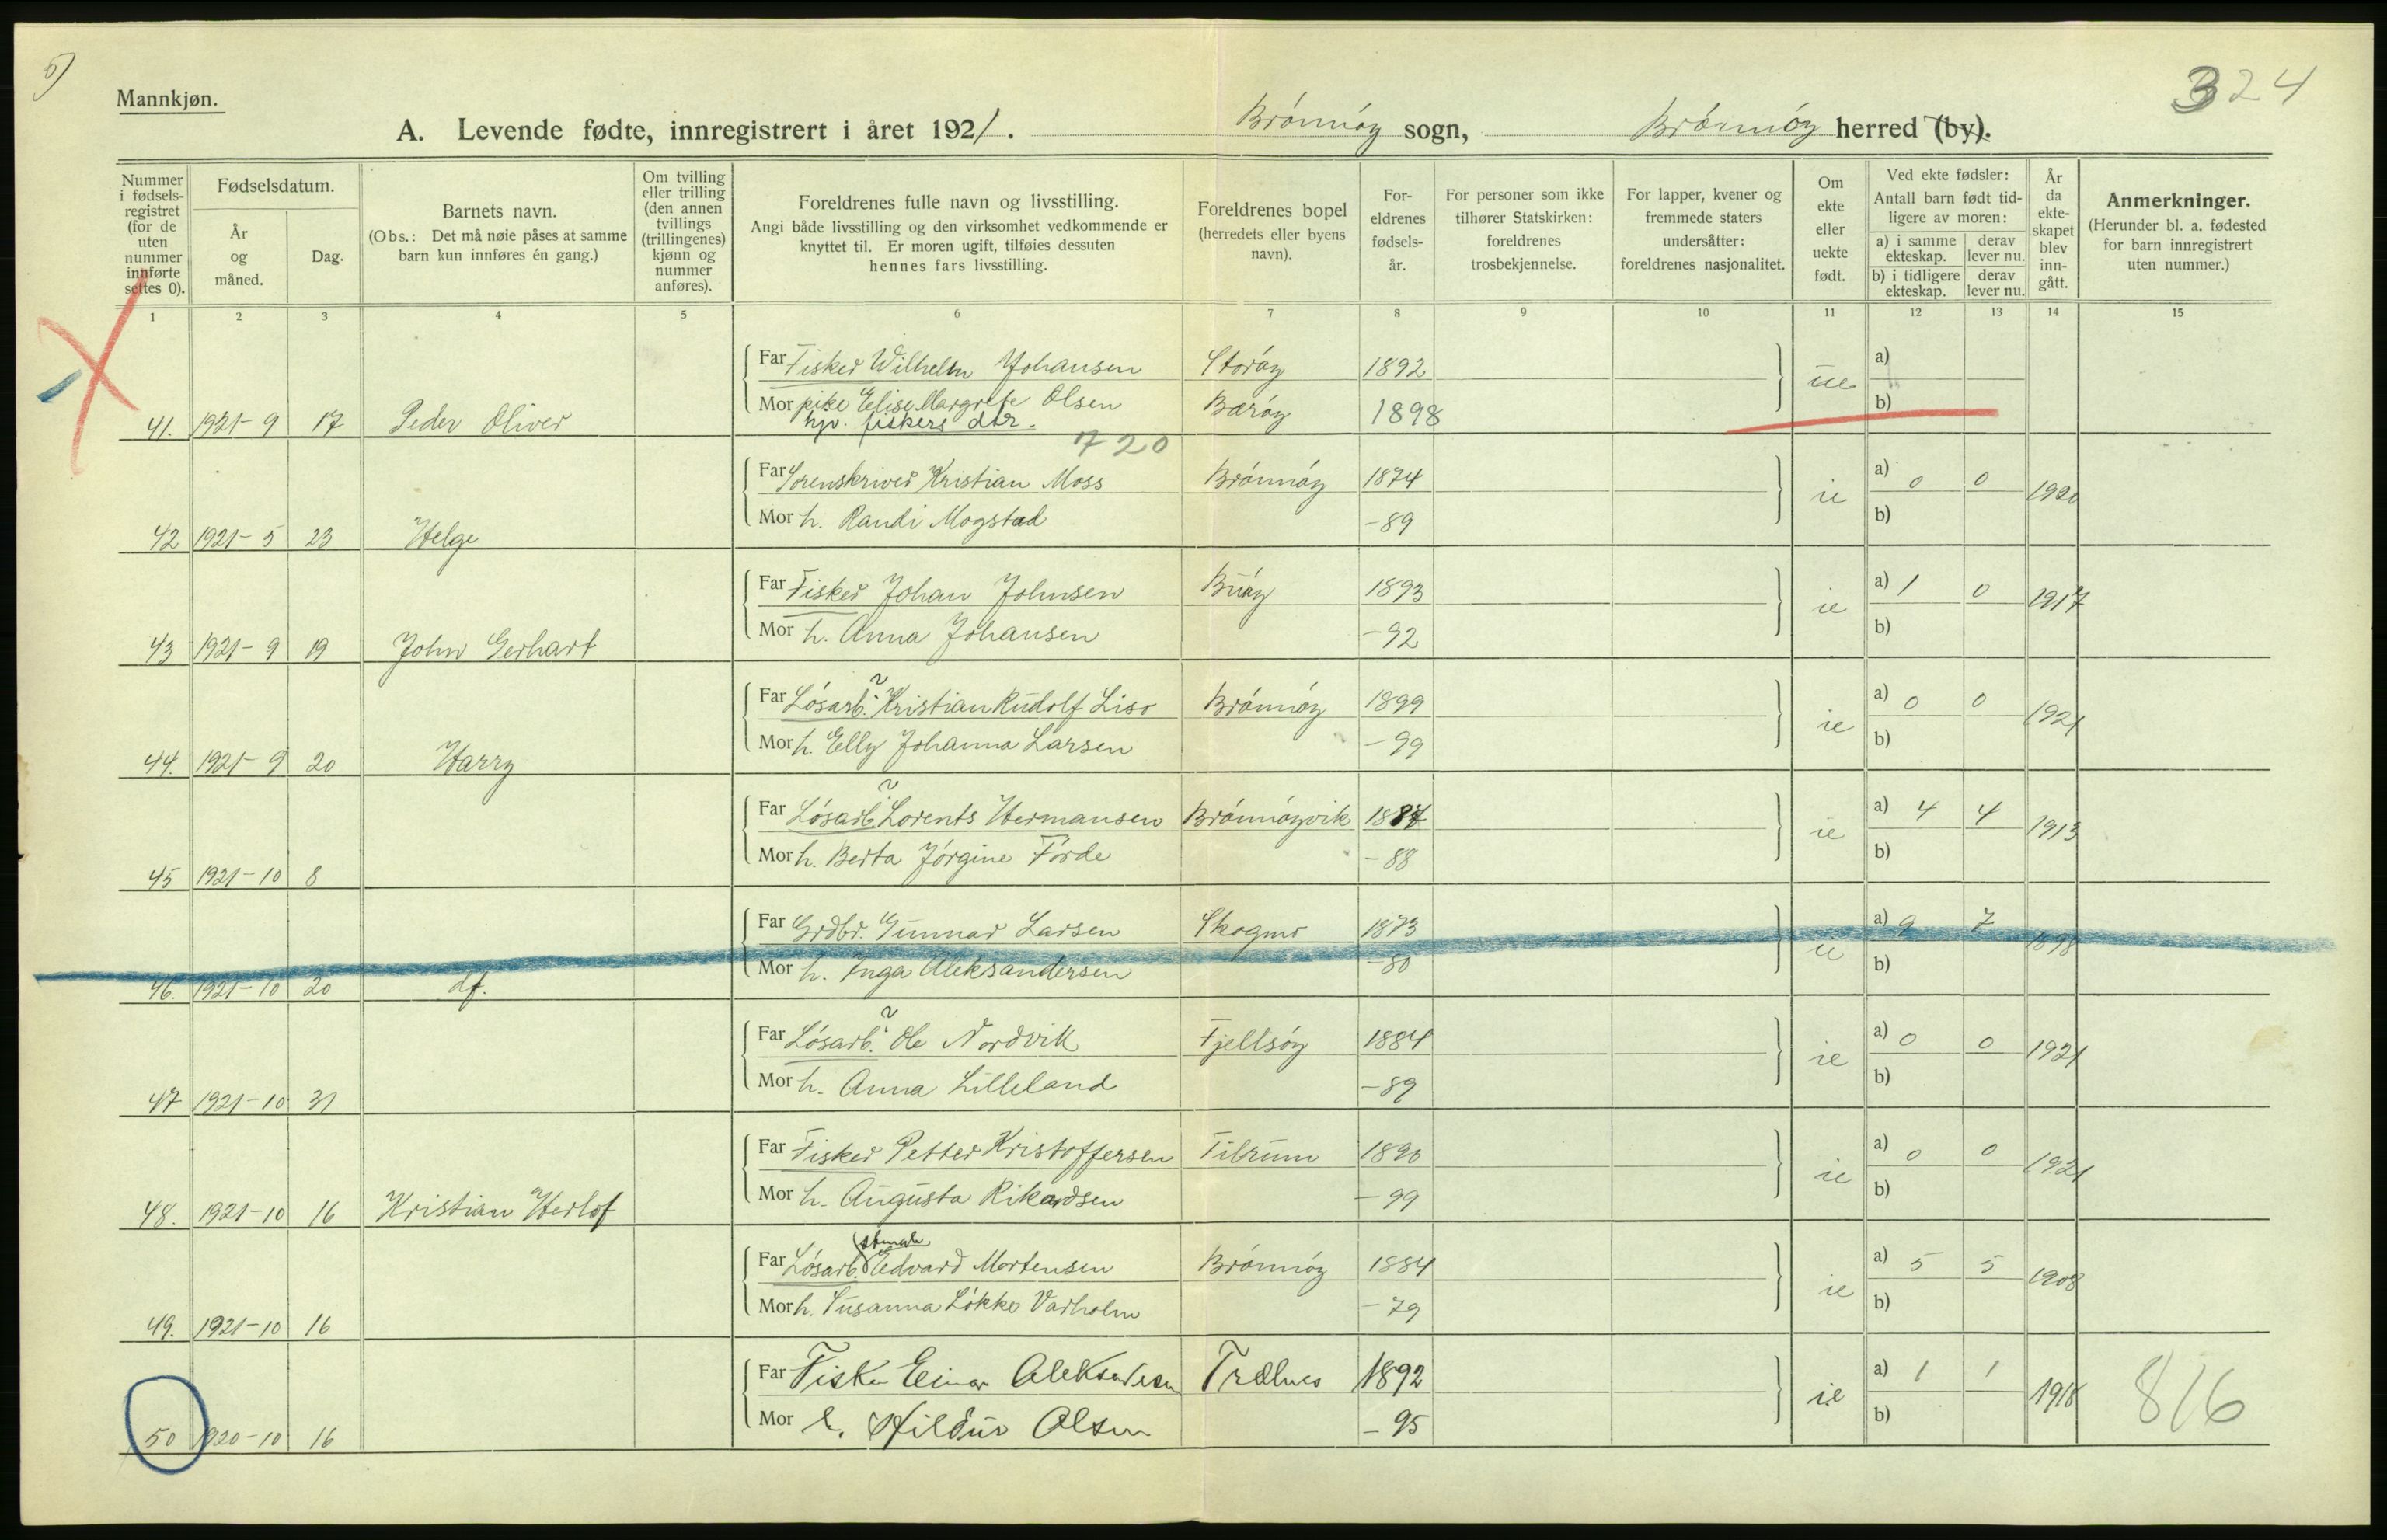 5)
324
Mannkjøn.
A. Levende fødte, innregistrert i året 1921. Brönnöy sogn, Brönnöy herred (by).
Nummer i fødsels-registret (for de uten nummer innførte settes 0).
Fødselsdatum.
År og måned.
Dag.
Barnets navn.
(Obs.: Det må nøie påses at samme barn kun innføres én gang.)
Om tvilling eller trilling (den annen tvillings (trillingenes) kjønn og nummer anføres).
Foreldrenes fulle navn og livsstilling.
Angi både livsstilling og den virksomhet vedkommende er knyttet til. Er moren ugift, tilføies dessuten hennes fars livsstilling.
Foreldrenes bopel (herredets eller byens navn).
For-eldrenes fødsels-år.
For personer som ikke tilhører Statskirken: foreldrenes trosbekjennelse.
For lapper, kvener og fremmede staters undersåtter: foreldrenes nasjonalitet.
Om ekte eller uekte født.
Ved ekte fødsler:
Antall barn født tid-ligere av moren:
a) i samme ekteskap. derav lever nu.
b) i tidligere ekteskap. derav lever nu.
År da ekte-skapet blev inn-gått.
Anmerkninger.
(Herunder bl. a. fødested for barn innregistrert uten nummer.)
1 2 3 4 5 6 7 8 9 10 11 12 13 14 15
Far Fisker Wilhelm Johansen Storöy 1892 a)
Mor pike Elise Margrete Olsen Baröy 1898 ue b)
hjv. fiskers dtr.
41. 1921-9 17 Peder Oliver
720
Far Sorenskriver Kristian Moss Brönnöy 1874 a) 0 0
Mor h. Randi Mogstad -89 ie b) 1920
42 1921-5 23 Helge
Far Fisker Johan Johnsen Buöy 1893 a) 1 0
Mor h. Anna Johansen -92 ie b) 1917
43 1921-9 19 John Gerhart
Far Lösarb. Kristian Rudolf Liso Brönnöy 1899 a) 0 0
Mor h. Elly Johanna Larsen -99 ie b) 1921
44. 1921-9 20 Harry
Far Lösarb. Lorents Hermansen Brönnöyvik 1887 a) 4 4
Mor h. Berta Jörgine Förde -88 ie b) 1913
45 1921-10 8
Far Grdbr. Gunnar Larsen Skogmo 1873 a) 9 7
Mor h. Inga Aleksandersen -80 ie b) 1898
46. 1921-10 20 df.
Far Lösarb. Ole Nordvik Fjellsöy 1884 a) 0 0
Mor h. Anna Lilleland -89 ie b) 1921
47 1921-10 31
Far Fisker Petter Kristoffersen Tilrum 1890 a) 0 0
Mor h. Augusta Rikardsen -99 ie b) 1921
48. 1921-10 16 Kristian Herlof
Far Lösarb. Edvard Mortensen Brönnöy 1884 a) 5 5
Mor h. Susanna Lökke Varholm -79 ie b) 1908
49. 1921-10 16
Far Fisker Einar Aleksandersen Trælnes 1892 a) 1 1
Mor h. Hildur Olsen -95 ie b) 1918 816
50 1920-10 16